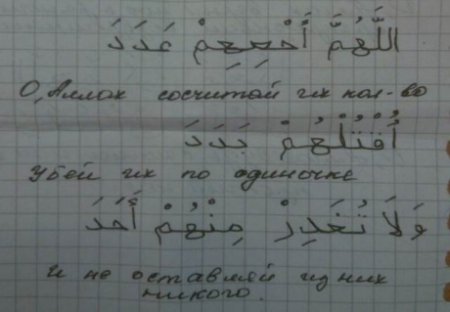 اللَّهُمَّ أَحْصِعِمْ عَدَدَ
О, Аллах сосчитай их кол-во
أُقْتُلْهُمْ بَدَدَ
Убей их по одиночке
وَلَا تُغَدِرْ مِنْهُمْ أَحَدَ
и не оставляй из них
никого.